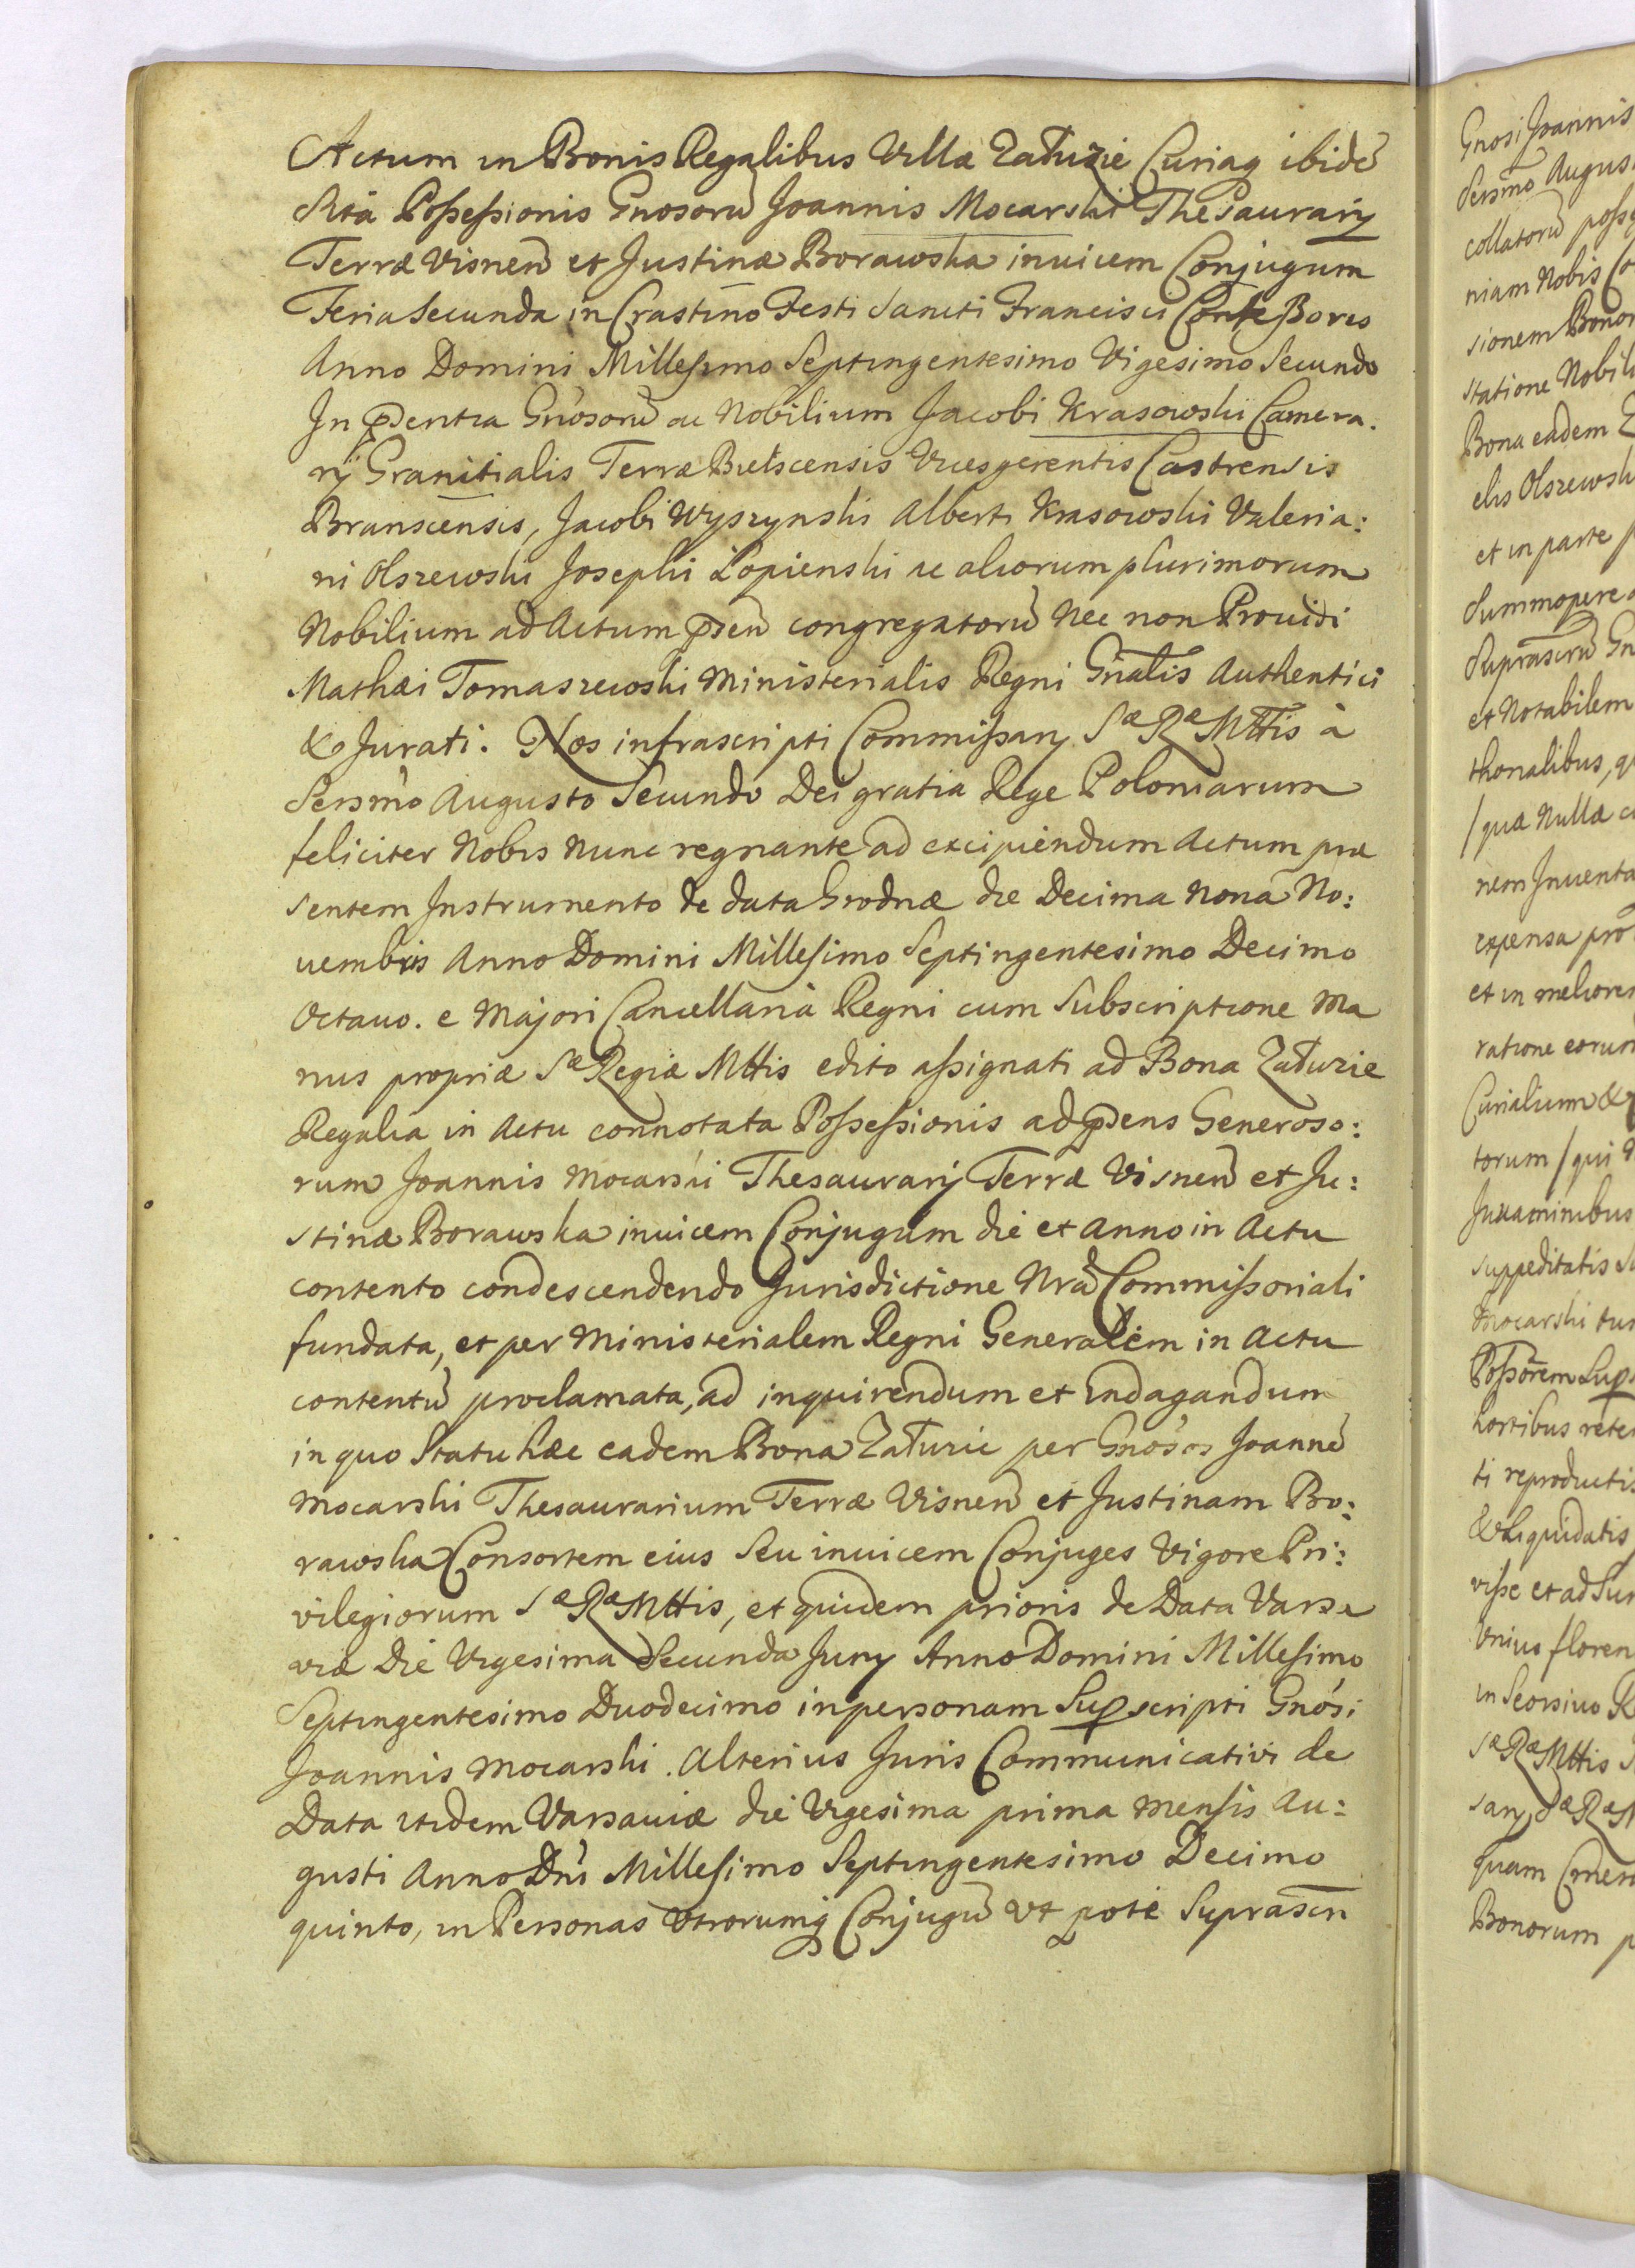 Actum in Bonis Regalibus Villæ Załuzie Curiaq ibidẽ
Sita Possessionis Gnosorũ Joannis Mocarski Thesaurarij
Terræ Visneñ et Justinæ Borawska inuicem Conjugum
Feria Secunda in Crastino Festi Sancti Francisci Confessoris
Anno Domini Millesimo Septingentesimo Vigesimo Secundo
In p̃sentia Gnosorũ ac Nobilium Jacobi Krasowski Camera.
rij Granitialis Terræ Bielscensis Vicesgerentis Castrensis
Branscensis, Jacobi Wyszynski Alberti Krasowski Valeria:
ni Olszewski Josephi Łopienski ac aliorum plurimorum
Nobilium ad Actum p̃señ congregatorũ Nec non Prouidi
Mathæi Tomaszewski Ministerialis Regni Gnalis Authentici
& Jurati. Nos infrascripti Commissarij Sæ Ræ Mttis à
Sersmo Augusto Secundo Dei gratia Rege Poloniarum
feliciter Nobis Nunc regnante ad excipiendum Actum præ
sentem Instrumento de data Grodnæ die Decima Nona No:
uembris Anno Domini Millesimo Septingentesimo Decimo
Octauo. e Majori Cancellaria Regni cum Subscriptione Ma
nus propriæ Sæ Regiæ Mttis edito assignati ad Bona Załuzie
Regalia in Actu connotata Possessionis ad p̃sens Generoso:
rum Joannis Mocarski Thesaurarij Terræ Visneñ et Ju:
stinæ Borawska inuicem Conjugum die et Anno in Actu
contento condescendendo Jurisdictione Nrã Commissoriali
fundata, et per Ministerialem Regni Generalem in Actu
contentũ proclamata, ad inquirendum et indagandum
in quo Statu hæc eadem Bona Załuzie per Gnosos Joannẽ
Mocarski Thesaurarium Terræ Visneñ et Justinam Bo:
rawska Consortem eius Seu inuicem Conjuges Vigore Pri:
vilegiorum Sæ Ræ Mttis, et quidem prioris de Data Varsa
viæ Die Vigesima Secunda Junij Anno Domini Millesimo
Septingentesimo Duodecimo in personam Supscripti Gnosi
Joannis Mocarski. Alterius Juris Communicativi de
Data itidem Varsauiæ die Vigesima prima Mensis Au:
gusti Anno Dni Millesimo Septingentesimo Decimo
quinto, in Personas Utrorumq Conjugũ Ut pote Suprascrı̃
Gnosi Joannis
Sersmo August
collatorũ poss
niam Nobis Co
sionem Bonor
statione Nobili
Bona eadem Z
elis Olszewski
et in parte p
Summopere
Suprascrũ Gn
et Notabilem
thonalibus, q
/ quæ Nullæ c
nem Inuenta
expensa pro
et in meliorem
ratione eorum
Curialium &
torum / qui
Juxaminibus
suppeditatis
Mocarski
Possorem Sup
hortibus rete
ti reproductis
& liquidatis
visse et ad Sum
Unius floren
in Seorsiuo R
Sæ Ræ Mttis
sarij Sæ Ræ M
quam
Bonorum p